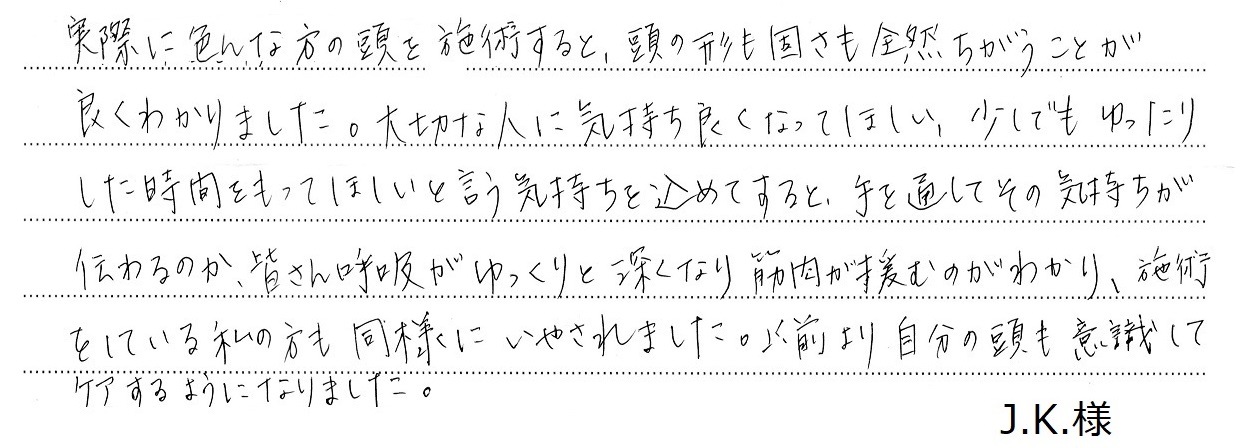 実際に色んな方の頭を施術すると、頭の形も固さも全然ちがうことが
良くわかりました。大切な人に気持ち良くなってほしい、少しでもゆったり
した時間をもってほしいと言う気持ちを込めてすると、手を通してその気持ちが
伝わるのか、皆さん呼吸がゆっくりと深くなり筋肉が援むのがわかり、施術
をしている私の方も同様にいやされました。以前より自分の頭も意識して
ケアするようになりました。
J.K.様